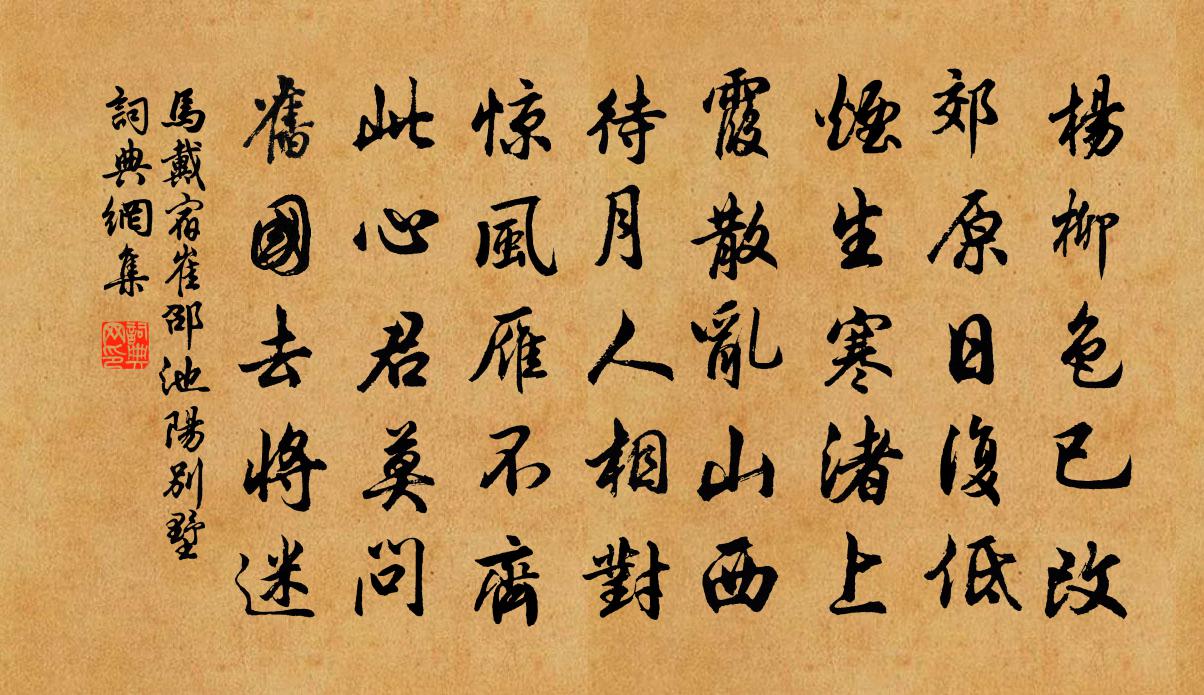 楊柳色已改
郊原日復低
煙生寒渚上
霞散亂山西
待月人相對
惊風雁不齊
此心君莫問
舊國去將迷
馬戴宿崔邵池陽別墅
詞典網集
詞典网印